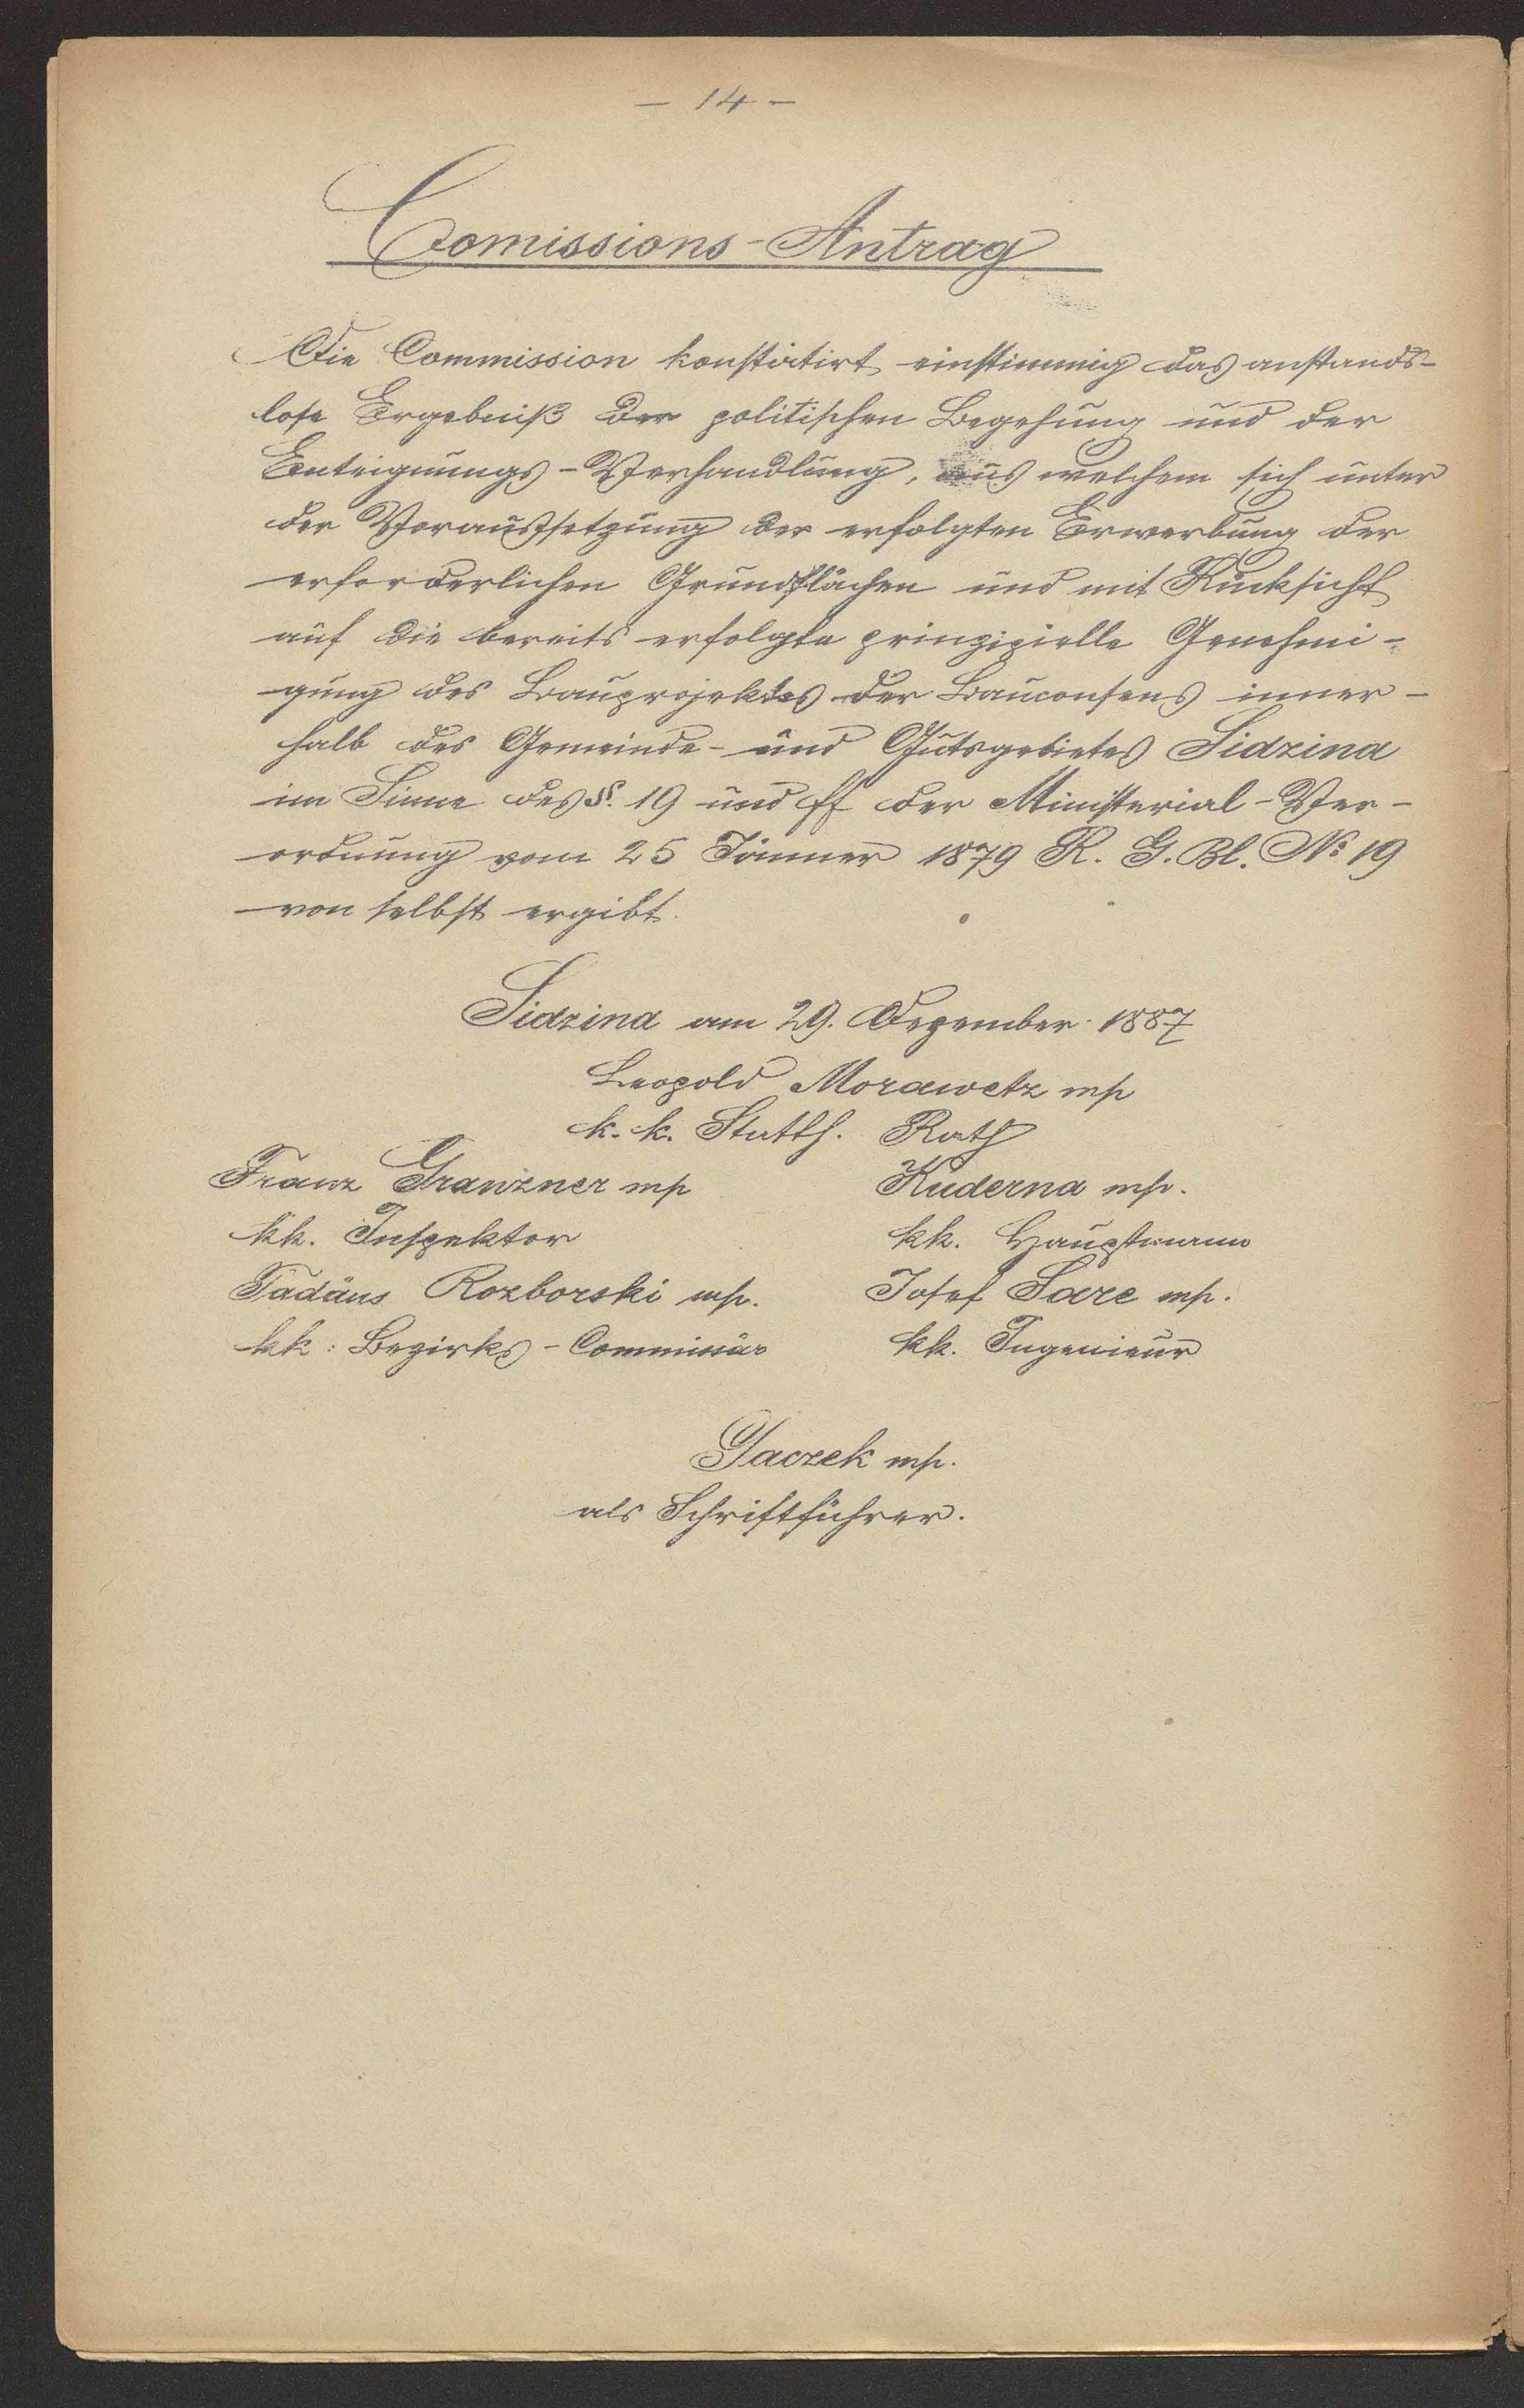 — 14 —
Comissions-Antrag
Die Commission konstatirt einstimmig das anstands-
lose Ergebniß der politischen Begehung und der
Enteignungs-Verhandlung, aus welchem sich unter
der Voraussetzung der erfolgten Erwerbung der
erforderlichen Grundflächen und mit Rücksicht
auf die bereits erfolgte prinzipielle Genehmi-
gung des Bauprojektes der Bauconsens inner-
halb des Gemeinde- und Gutsgebietes Sidzina
im Sinne des §. 19 und ff der Ministerial-Ver-
ordnung vom 25 Jänner 1879 R. G. Bl. No 19
von selbst ergibt.
Sidzina am 29. Dezember 1887
Leopold Morawetz mp
k. k. Statth. Rath
Franz Granzner mp
kk. Inspektor
Tadäus Rozborski mp.
kk: Bezirks-Commissär
Kuderna mp.
kk. Hauptmann
Josef Sare mp.
kk. Ingenieur
Gaczek mp.
als Schriftführer.